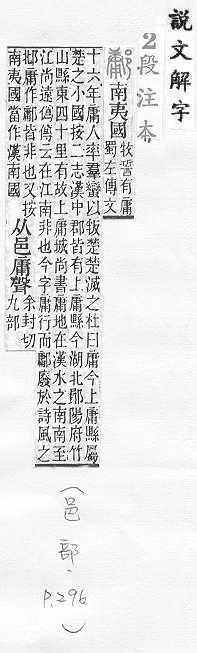 說文解字
2段注本
鄘 南夷國 牧誓有庸
蜀左傳文
十六年庸人率羣蠻以叛楚楚滅之杜曰庸今上庸縣屬
楚之小國按二志漢中郡皆有上庸縣今湖北鄖陽府竹
山縣東四十里有故上庸城尚書庸地在漢水之南南至
江尚遠僞傳云在江南非也今字庸行而鄘廢於詩風之
邶庸作鄘皆非也又按
南夷國當作漢南國
从邑庸聲 余封切
九部
（邑部、P.296）